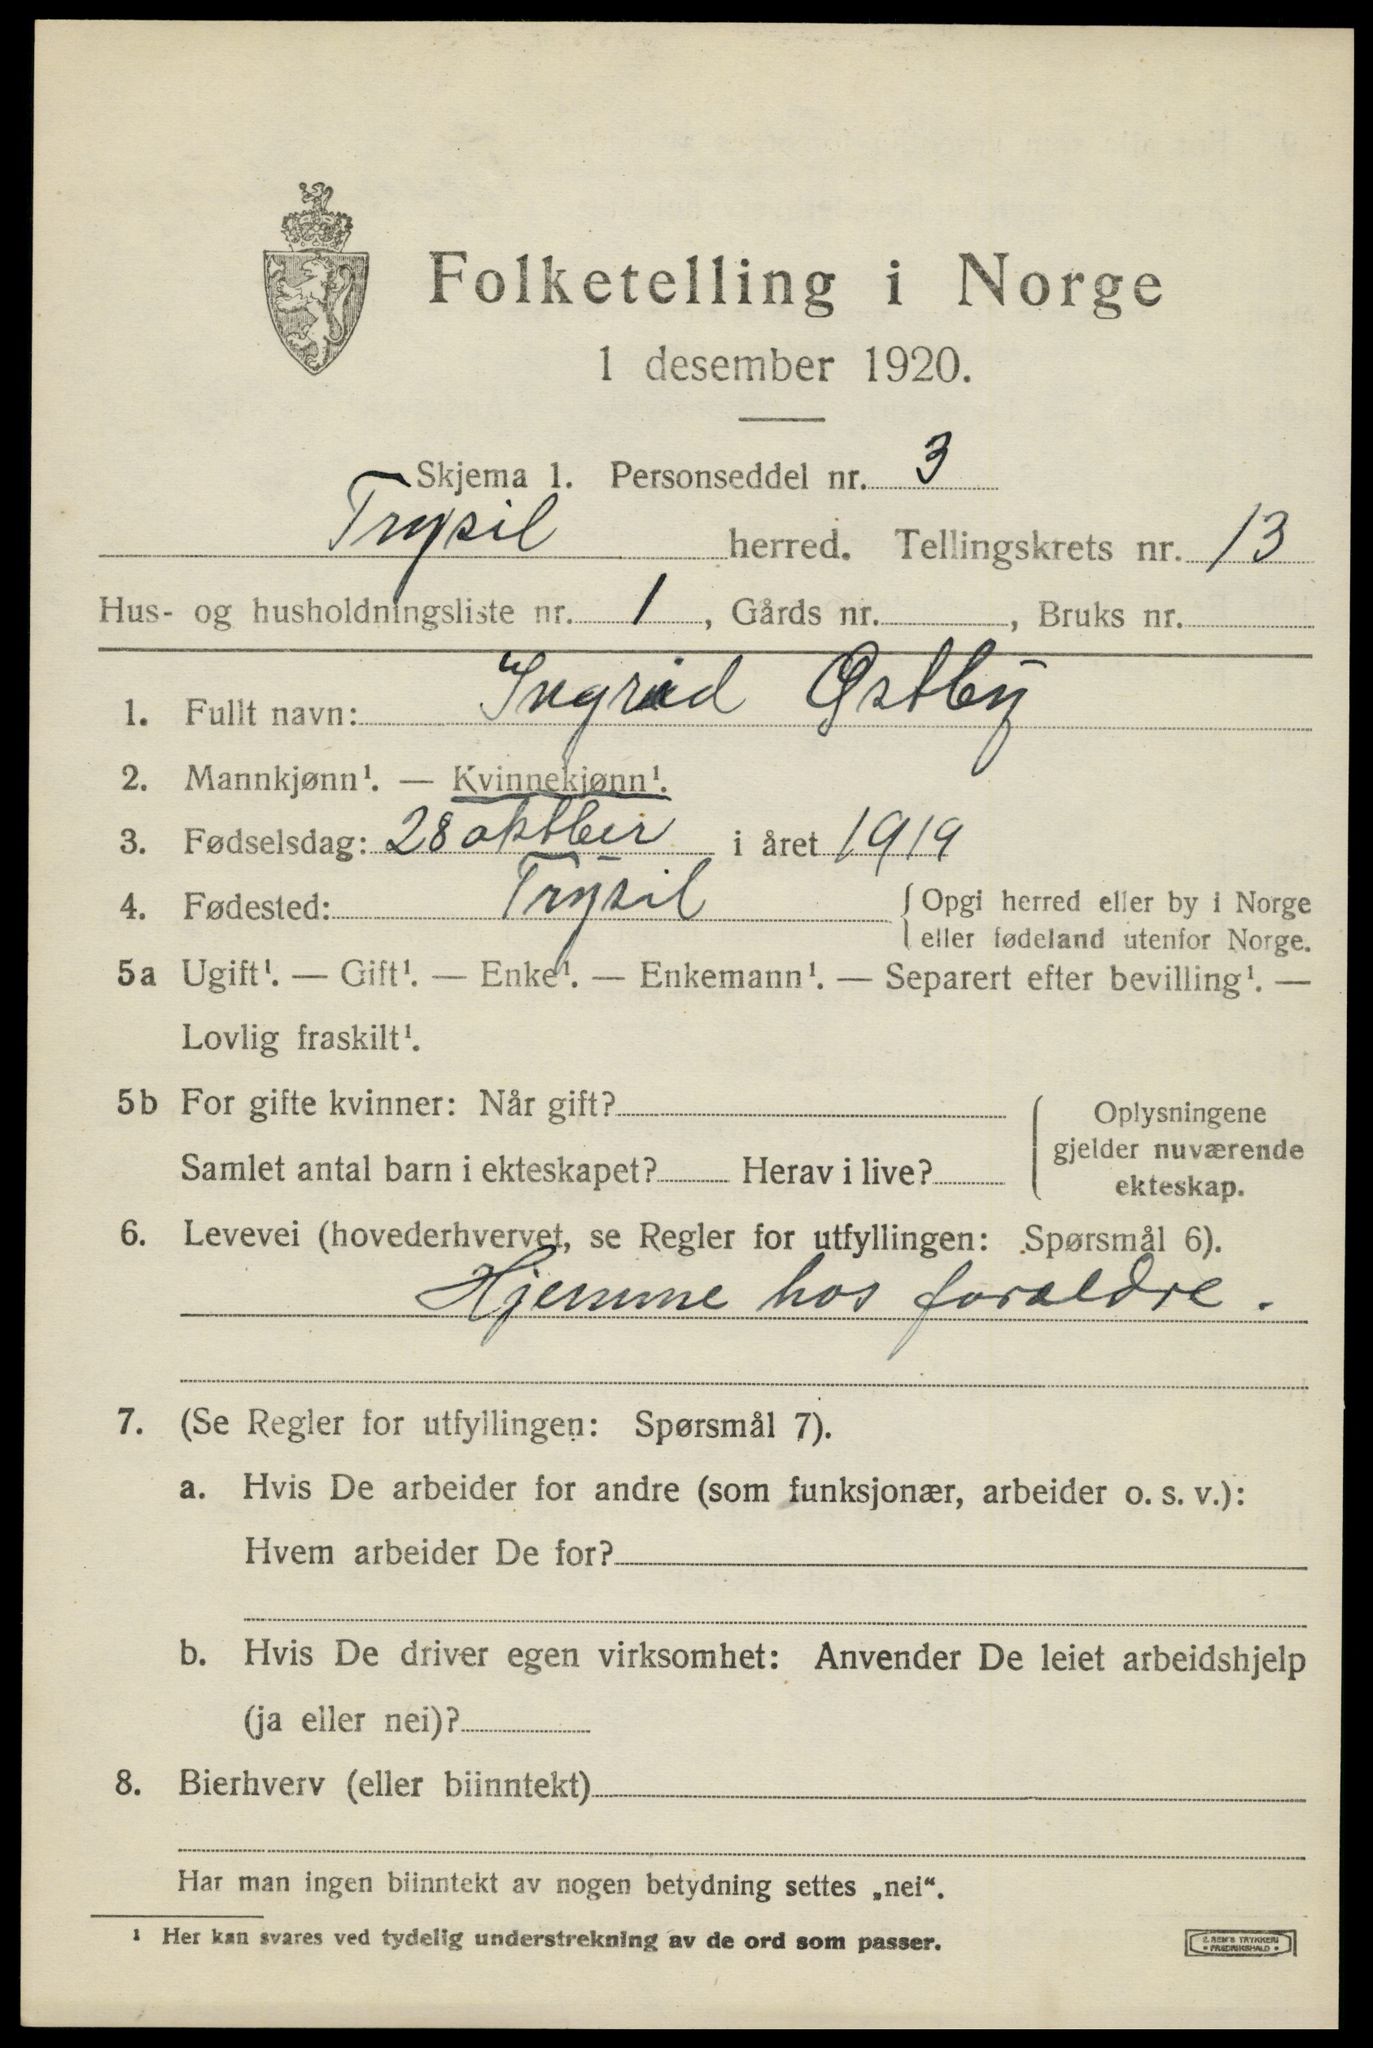 Folketelling i Norge
1 desember 1920.
Skjema 1. Personseddel nr. 3
Trysil herred. Tellingskrets nr. 13
Hus- og husholdningsliste nr. 1, Gårds nr. , Bruks nr.
1. Fullt navn: Ingrid Østby
2. Mannkjønn¹. — Kvinnekjønn¹.
3. Fødselsdag: 28 oktber i året 1919
4. Fødested: Trysil { Opgi herred eller by i Norge
eller fødeland utenfor Norge.
5a Ugift¹. — Gift¹. — Enke¹. — Enkemann¹. — Separert efter bevilling¹. —
Lovlig fraskilt¹.
5b For gifte kvinner: Når gift?
Samlet antal barn i ekteskapet? Herav i live?
Oplysningene
gjelder nuværende
ekteskap.
6. Levevei (hovederhvervet, se Regler for utfyllingen: Spørsmål 6).
Hjemme hos foraeldre.
7. (Se Regler for utfyllingen: Spørsmål 7).
a. Hvis De arbeider for andre (som funksjonær, arbeider o. s. v.):
Hvem arbeider De for?
b. Hvis De driver egen virksomhet: Anvender De leiet arbeidshjelp
(ja eller nei)?
8. Bierhverv (eller biinntekt)
Har man ingen biinntekt av nogen betydning settes „nei“.
¹ Her kan svares ved tydelig understrekning av de ord som passer.
E. SEM'S TRYKKERI
• FREDRIKSHALD •